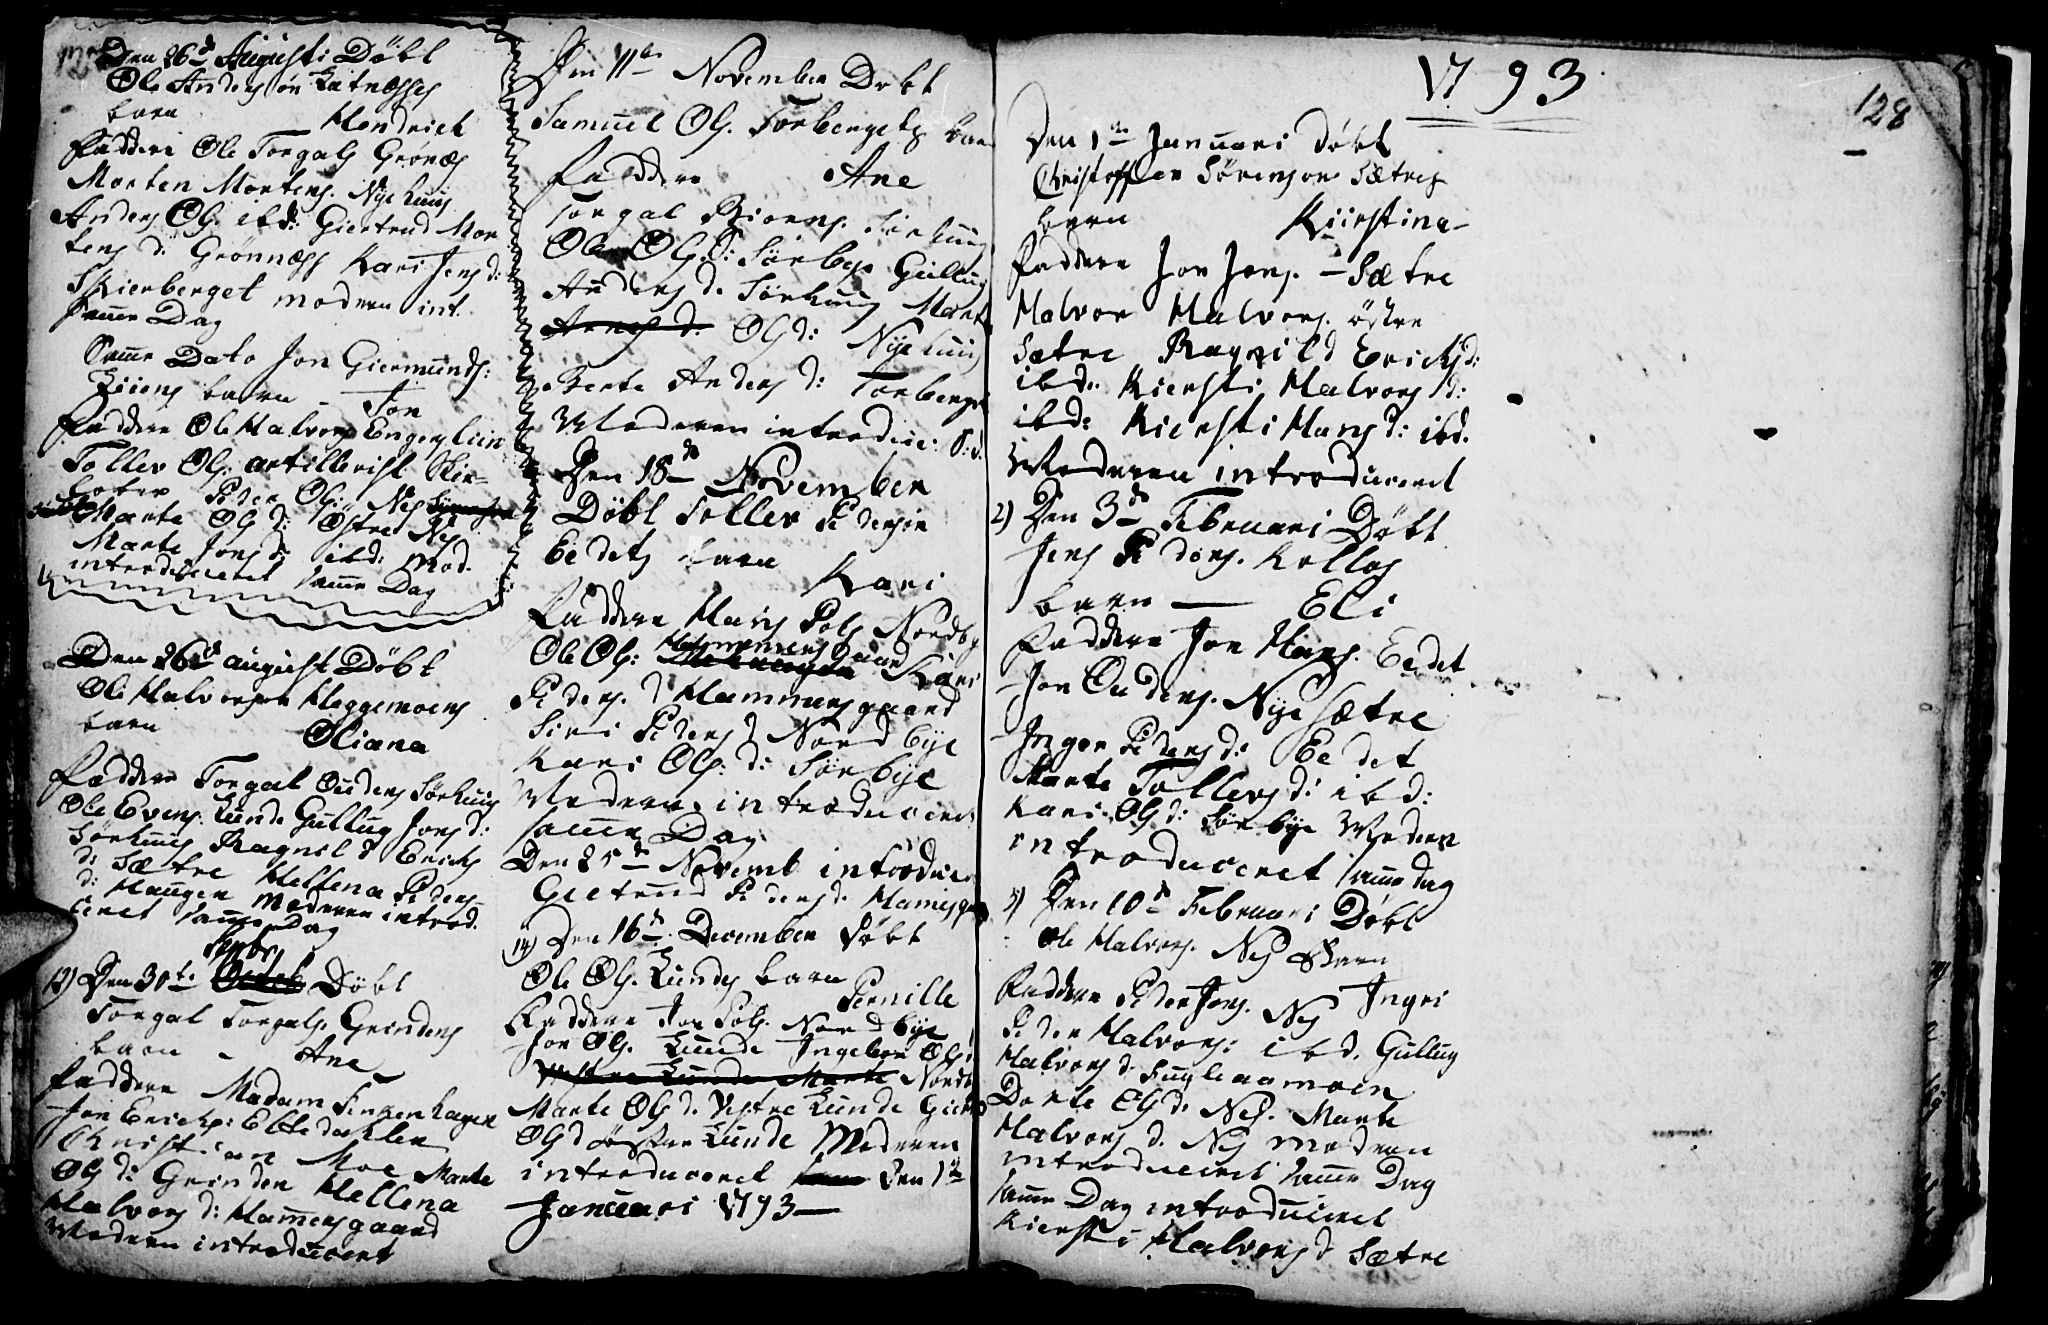 Den 26d Augusti Döbt
Ole Andersøn Katnæsses
barn Hendrich
Faddere Ole Torgals Grönæs
Morten Mortens. Nyehuus
Anders Ols. ibd: Giertrud Mor
tens d: Grönnæss Kari Jens d:
Skierberget moderen int.
samme Dag
Samme Dato Jon Giermunds:
barn – Jon
Faddere Ole Halvors
Tollev Ols. artillerist
Peder Ols: Nes
Marte Ols d: Østre Nes
Marte Jons d: ibd: Mod.
introduceret samme Dag
Den 26d august Döbt
Ole Halvorsen Heggemoens
barn Oliana
Faddere Torgal Oudens Sørhuus
Ole Evens. Lunde Gullug Jons d:
Sørhuus Ragnild Erichs
d: Sætre Hellena Peders
d: Haugen Moderen introd.
ceret samme Dag
Septbr
13) Den 30te Octob Döbt
Torgal Torgals. Grindens
barn – Ane
Faddere Madam Finkenhagen
Jon Erichs: Ebbedahlen
Christian Moe Marte
Ols d: Grinden Hellena
Halvors d: Hamersgaard
Moderen introduceret
Den 11te November Döbt
Samuel Ols. Torbergets barn
Faddere Ane
Torgal Biörns. Sørhuus
Ole Ols. d: Sørbye Gullug
Anders d. Sørhuus Marte
Arnes d. Ols d: Nyehuus
Berte Anders d: Torberget
Moderen introduc: S: d.
Den 18de November
Döbt Tollev Pedersøn
Eedets barn Kari
Faddere Hans Pols Nordby
Ole Ols: Hammersgaard Kari
Peders. d Hammersgaard
Siri Peders d Nordbye
Kari Ols: d: Sørbye
Moderen introducert
samme Dag
Den 25de Novemb introducer
Gietrud Peders d. Hamersga
14) Den 16de December Döbt
Ole Ols. Lundes barn
Pernille
Faddere Jon Pols. Nordbye
Jon Ols. Lunde Ingebor Ols:
Vestre Lunde Marte Nordb
Marte Ols d. Vestre Lunde Giertr
Ols d Østre Lunde Moderen
introduceret Sam Den 1te
Januari 1793
1793
128
Den 1te Januari Döbt
Christoffer Sörensøn Sætres
barn Kierstina
Faddere Jon Jons. – Sætre
Halvor Halvors. östre
Sætre Ragnild Erichs d:
ibd: Kiersti Halvors d:
ibd: Kiersti Hans d: ibd.
Moderen introduceret
2) Den 3de Februari Döbt
Jens Peders. Kollos
barn — Eli
Faddere Jon Hans. Eedet
Jon Oudens. Nye sætre
Inger Peders d: Eedet
Marte Tollevs d: ibd:
Kari Ols d: Sørbye Moderen
introduceret samme dag
3) Den 10de Februari Döbt
Ole Halvors. Nes Barn
Ingri
Faddere Peder Jons. Nes
Peder Halvors: ibd. Gullug
Halvors d: Fugleaamoen
Dorte Ols d. Nes. Marte
Halvors d. Nes moderen
introduceret samme Dag
samme Dag introduceret
Kiersti Halvors d Sætre